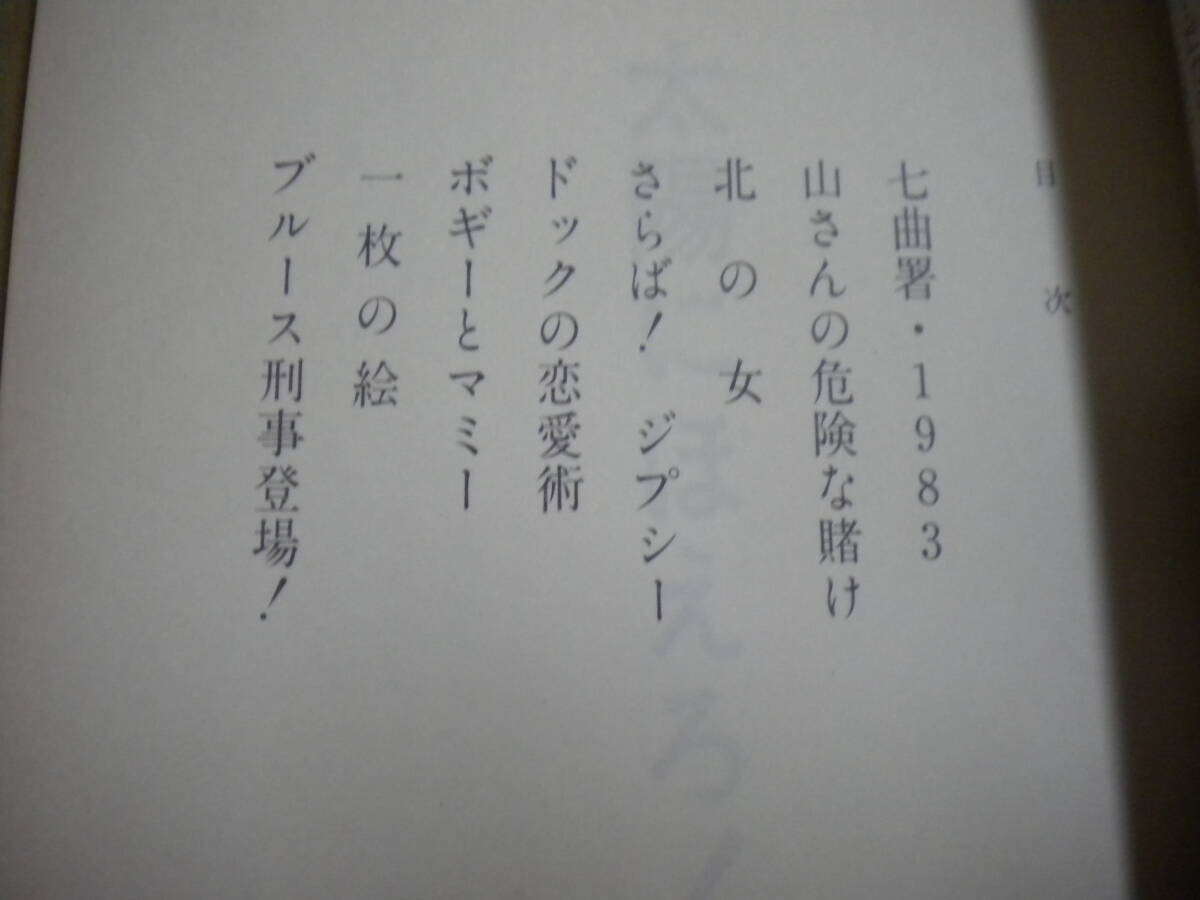 目次
七曲署・1983
山さんの危険な賭け
北の女
さらば！ ジプシー
ドックの恋愛術
ボギーとマミー
一枚の絵
ブルース刑事登場！
太陽にほえろ！